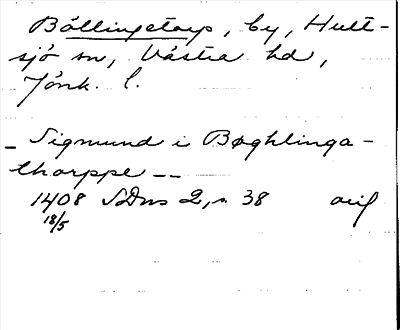 Böllingetorp, by, Hult-
sjö sn, Västra hd,
Jönk. l.
_ Sigmund i Bøghlinga-
thorppe --
1408 SDns 2, s 38
18/5